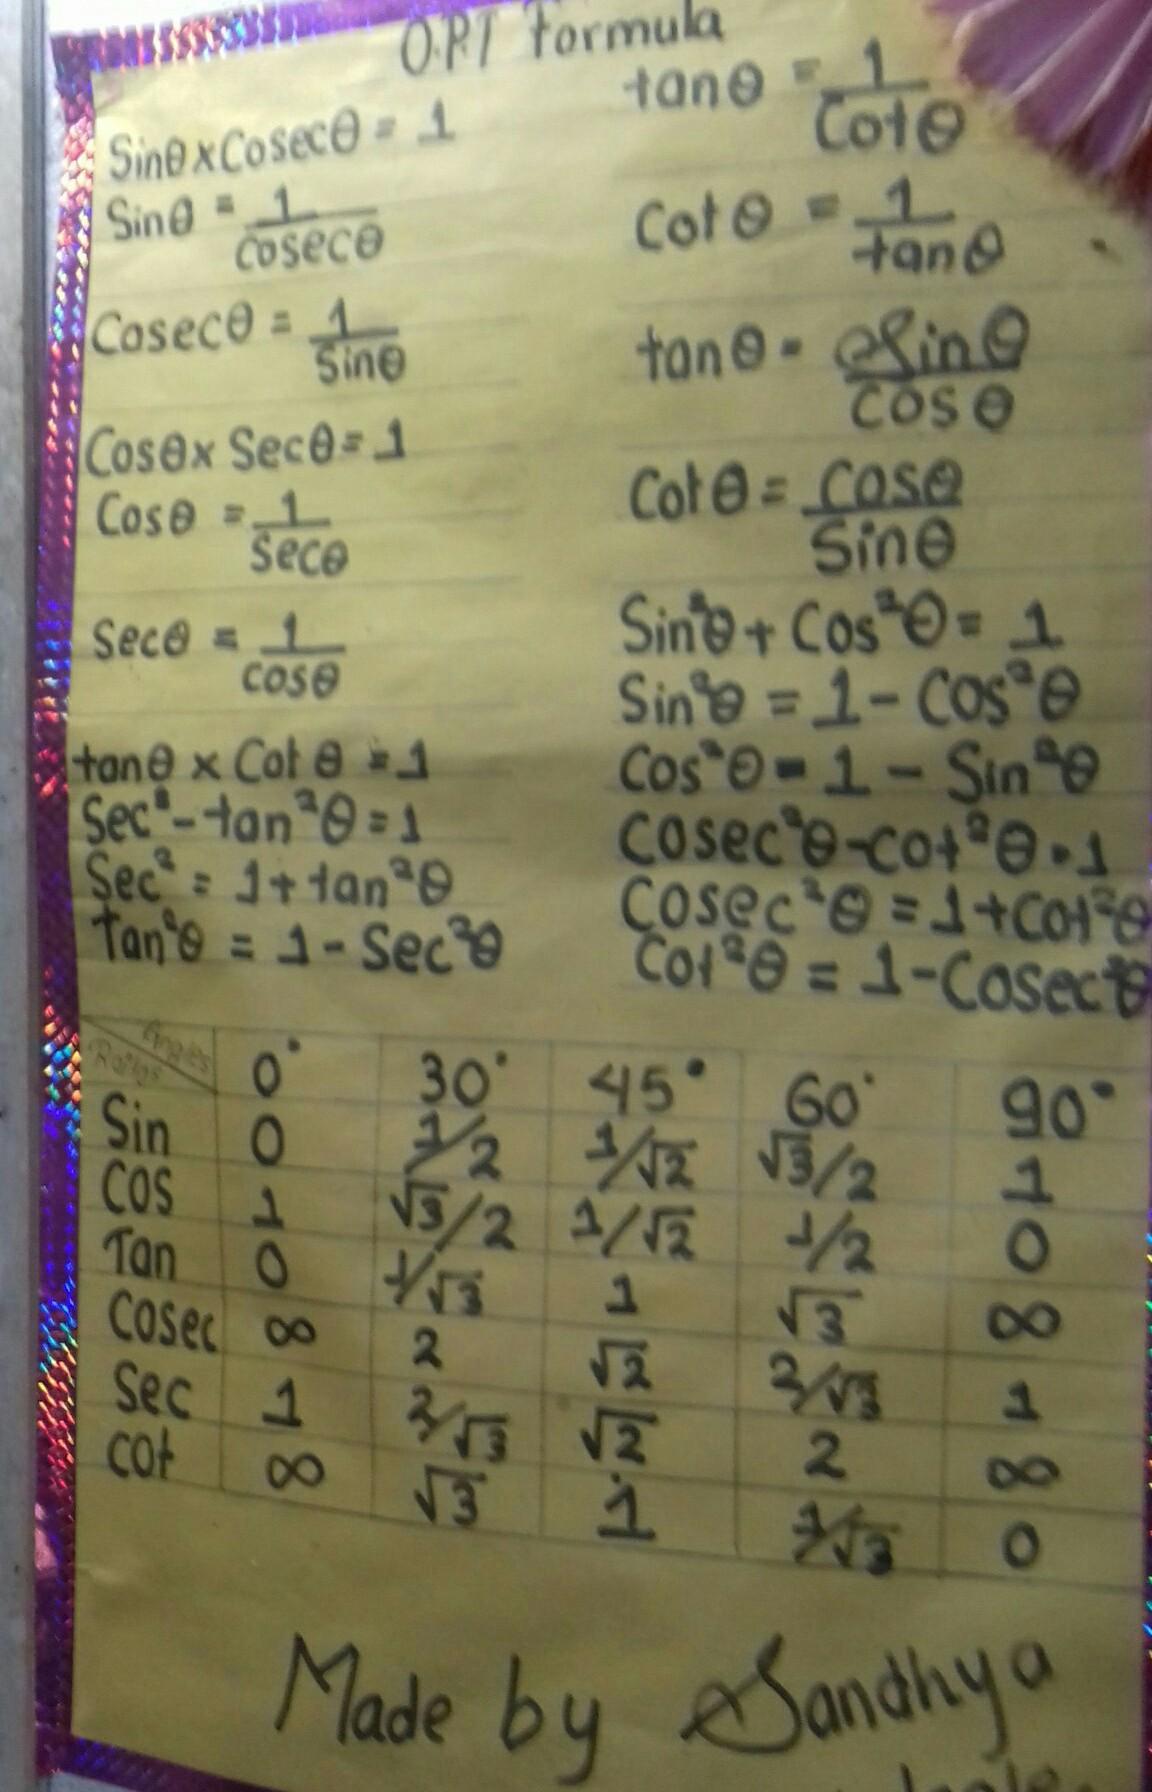 O.P.T Formula
Sinθ x Cosecθ = 1
Sinθ = 1/Cosecθ
Cosecθ = 1/Sinθ
Cosθ x Secθ = 1
Cosθ = 1/Secθ
Secθ = 1/cosθ
tanθ x Cot θ = 1
Sec² - tan²θ = 1
Sec² = 1 + tan²θ
Tan²θ = 1 - Sec²θ
tanθ = 1/Cotθ
Cot θ = 1/tanθ
tanθ = Sinθ/cosθ
Cotθ = cosθ/Sinθ
Sin²θ + Cos²θ = 1
Sin²θ = 1 - Cos²θ
Cos²θ = 1 - Sin²θ
Cosec²θ - cot²θ = 1
Cosec²θ = 1 + Cot²θ
Cot²θ = 1 - Cosec²θ
Angles
Ratios 0° 30° 45° 60° 90°
Sin 0 1/2 1/√2 √3/2 1
Cos 1 √3/2 1/√2 1/2 0
Tan 0 1/√3 1 √3 ∞
Cosec ∞ 2 √2 2/√3 1
Sec 1 2/√3 √2 2 ∞
Cot ∞ √3 1 1/√3 0
Made by Sandhya